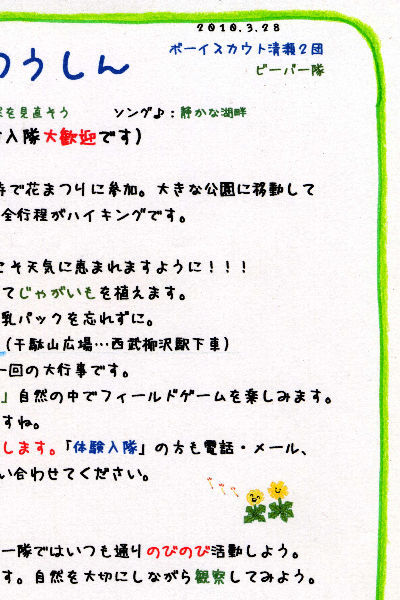 2010.3.28
つうしん
ボーイスカウト清瀬2団
ビーバー隊
を見直そう ソング♪：静かな湖畔
入隊大歓迎です）
寺で花まつりに参加。大きな公園に移動して
全行程がハイキングです。
こそ天気に恵まれますように！！！
てじゃがいもを植えます。
乳パックを忘れずに。
（千駄山広場…西武柳沢駅下車）
一回の大行事です。
」自然の中でフィールドゲームを楽しみます。
すね。
します。「体験入隊」の方も電話・メール、
い合わせてください。
一隊ではいつも通りのびのび活動しよう。
す。自然を大切にしながら観察してみよう。